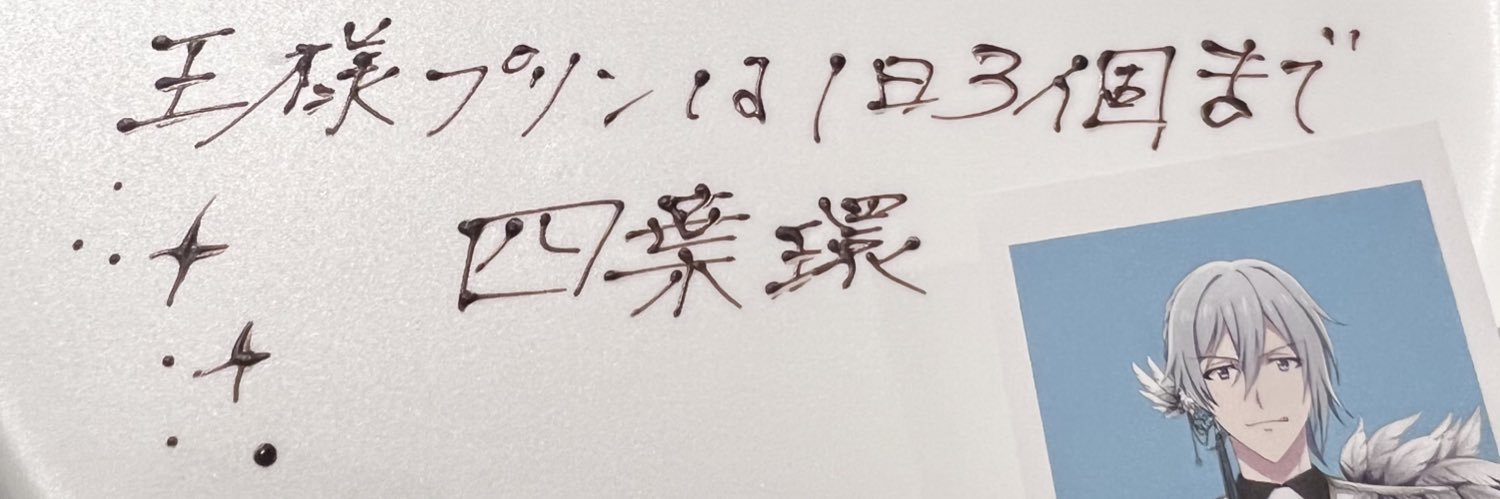 王様プリンは1日3個まで
四葉環